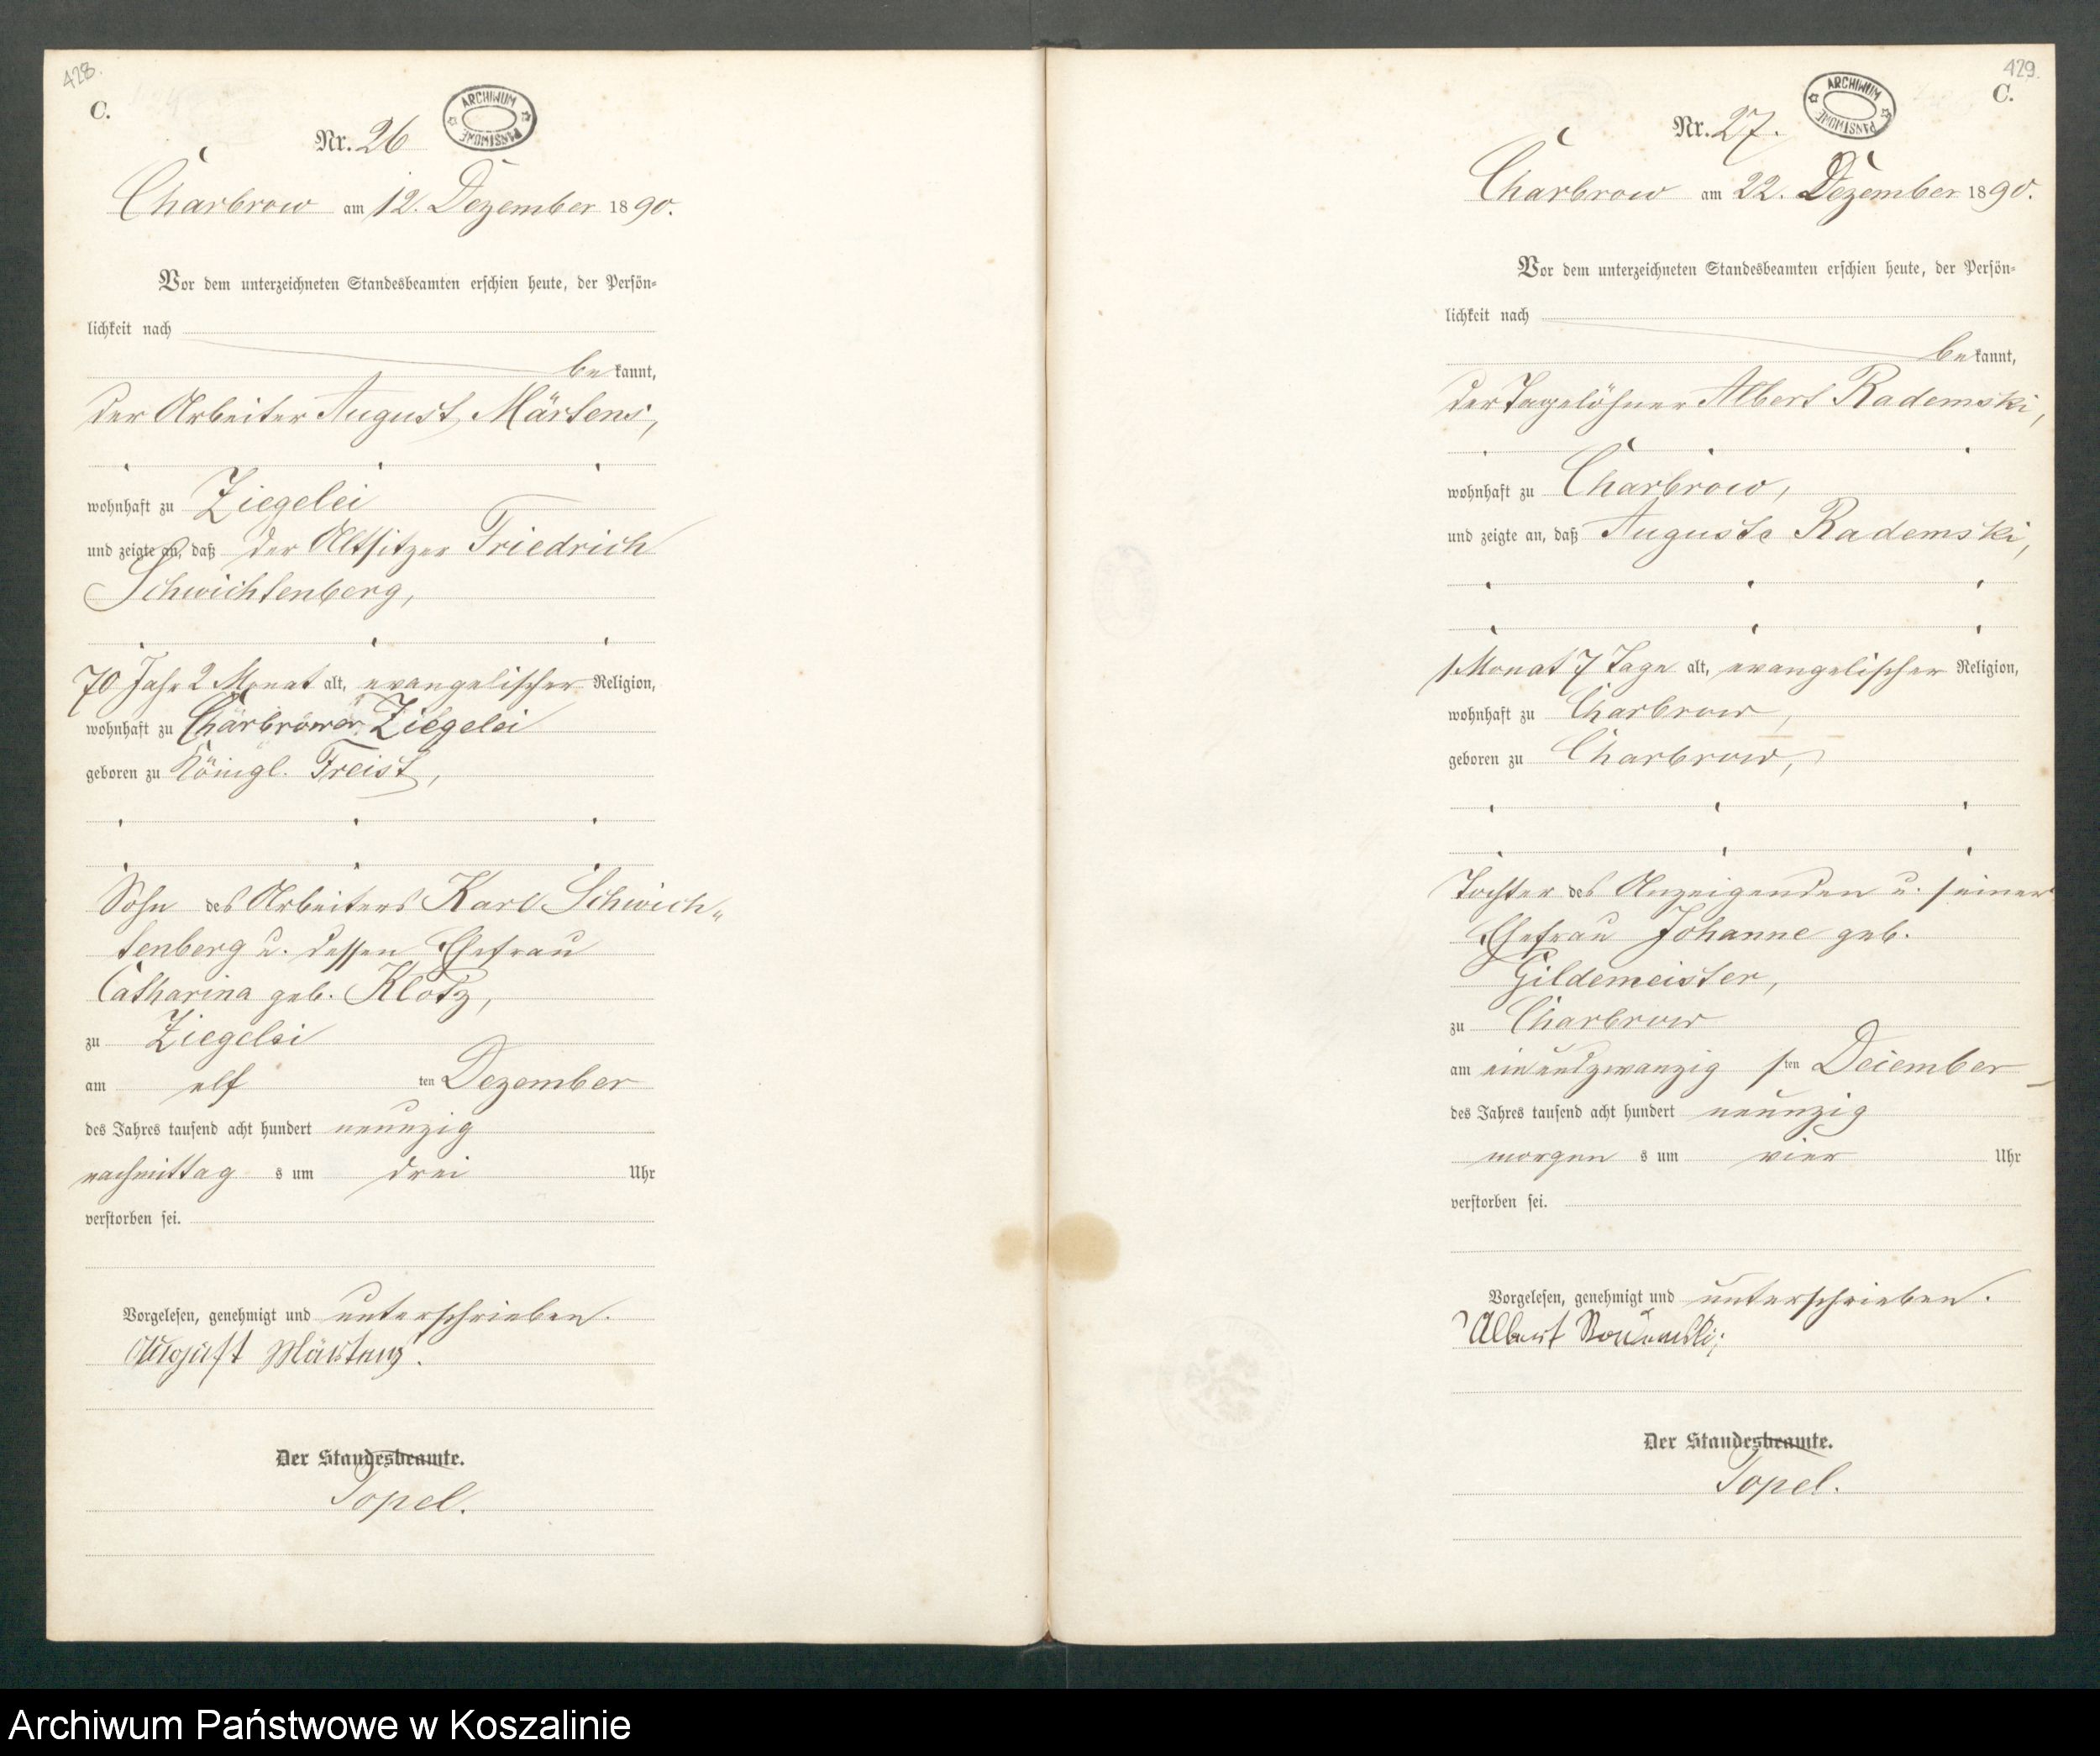 428.
C.
ARCHIWUM PAŃSTWOWE
Nr. 26
Charbrow am 12. Dezember 1890.
Vor dem unterzeichneten Standesbeamten erschien heute, der Persön-
lichkeit nach
bekannt,
der Arbeiter August Märtens,
wohnhaft zu Ziegelei
und zeigte an, daß der Altsitzer Friedrich
Schwichtenberg,
70 Jahr 2 Monat alt, evangelischer Religion,
wohnhaft zu Charbrower Ziegelei
geboren zu Königl. Freist,
Sohn des Arbeiters Karl Schwich„
tenberg u. dessen Ehefrau
Catharina geb. Klotz,
zu Ziegelei
am elf ten Dezember
des Jahres tausend acht hundert neunzig
nachmittag s um drei Uhr
verstorben sei.
Vorgelesen, genehmigt und unterschrieben.
August Märtens.
Der Standesbeamte.
Topel.
429.
C.
ARCHIWUM PAŃSTWOWE
Nr. 27.
Charbrow am 22. Dezember 1890.
Vor dem unterzeichneten Standesbeamten erschien heute, der Persön-
lichkeit nach
bekannt,
der Tagelöhner Albert Rademski,
wohnhaft zu Charbrow,
und zeigte an, daß Auguste Rademski,
1 Monat 7 Tage alt, evangelischer Religion,
wohnhaft zu Charbrow,
geboren zu Charbrow,
Tochter des Anzeigenden u. seiner
Ehefrau Johanne geb.
Gildemeister,
zu Charbrow
am einundzwanzig sten December
des Jahres tausend acht hundert neunzig
morgen s um vier Uhr
verstorben sei.
Vorgelesen, genehmigt und unterschrieben.
Albert Rademski;
Der Standesbeamte.
Topel.
Archiwum Państwowe w Koszalinie